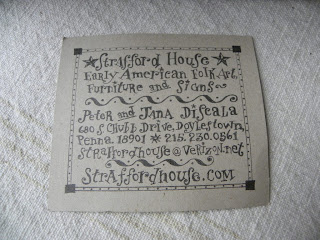 ★Strafford House★
Early American Folk Art,
Furniture and Signs
Peter and Jana DiScala
680 S Chubb Drive, Doylestown,
Penna. 18901 ★ 215.230.0561
straffordhouse@verizon.net
Straffordhouse.com